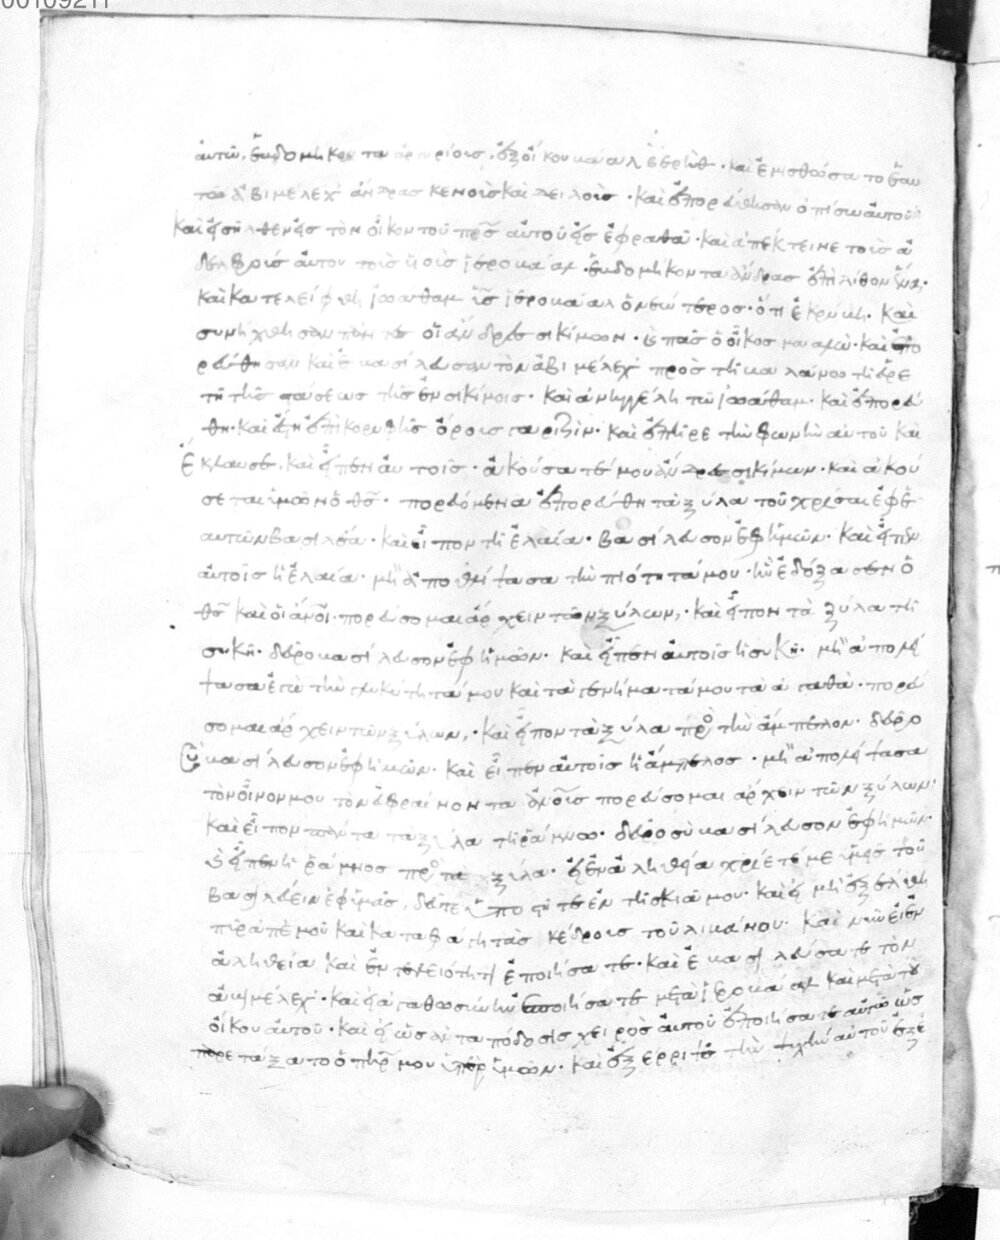 αὐτῶ, ἑβδομήκοντα ἀργυρίους, ἐξ οἴκου βάαλ βερὶθ· καὶ ἐμισθώσατο ἑαυ
τῶ ἀβιμελεχ ἄνδρας κενοὺς καὶ δειλοὺς· καὶ ἐπορεύθησαν ὀπίσω αὐτοῦ·
καὶ εἰσῆλθεν εἰς τὸν οἶκον τοῦ πρς αὐτοῦ εἰς ἐφραθὰ· καὶ ἀπέκτεινε τοὺς ἀ
δελφοὺς αὐτοῦ τοὺς υἱοὺς ἱεροβάαλ· ἑβδομήκοντα ἄνδρας ἐπὶ λίθον ἕνα·
καὶ κατελείφθη ἰωαθαμ υἱς ἱεροβάαλ ὁ νεώτερος· ὅτι ἐκρύβη· καὶ
συνήχθησαν πάντες οἱ ἄνδρες σικίμων· καὶ πᾶς ὁ οἶκος μααλὼ· καὶ ἐπο
ρεύθησαν καὶ ἐβασίλευσαν τὸν ἀβιμέλεχ πρὸς τῆ βαλάνω τῆ εὑρε
τῆ τῆς στάσεως τῆς ἐν σικίμοις· καὶ ἀνηγγέλη τῶ ἰωάθαμ· καὶ ἐπορεύ
θη· καὶ ἔστη ἐπὶ κορυφῆς ὄρους γαριζὶν· καὶ ἐπῆρε τὴν φωνὴν αὐτοῦ καὶ
ἔκλαυσε, καὶ εἶπεν αὐτοῖς· ἀκούσατέ μου ἄνδρες σικίμων· καὶ ἀκού
σεται ὑμῶν ὁ θς· πορευόμενα ἐπορεύθη τὰ ξύλα τοῦ χρῖσαι ἐφ ἑ
αυτῶν βασιλέα· καὶ εἶπον τῆ ἐλαία· βασίλευσον ἐφ ἡμῶν· καὶ εἶπεν
αὐτοῖς ἡ ἐλαία· μὴ ἀπολείψασα τὴν πιότητά μου· ἣν ἐδόξασεν ὁ
θς καὶ οἱ ἄνοι· πορεύσομαι ἄρχειν τῶν ξύλων,· καὶ εἶπον τὰ ξύλα τῆ
συκῆ· δεῦρο βασίλευσον ἐφ ἡμῶν· καὶ εἶπεν αὐτοῖς ἡ συκῆ· μὴ ἀπολεί
ψασα ἐγὼ τὴν γλυκύτητά μου καὶ τὰ γενήματά μου τὰ ἀγαθὰ· πορεύ
σομαι ἄρχειν τῶν ξύλων,· καὶ εἶπον τὰ ξύλα πρὸ τὴν ἄμπελον· δεῦρο
σὺ βασίλευσον ἐφ ἡμῶν· καὶ εἶπεν αὐτοῖς ἡ ἄμπελος· μὴ ἀπολείψασα
τὸν οἶνον μου τὸν εὐφραίνοντα ἀνους πορεύσομαι ἄρχειν τῶν ξύλων·
καὶ εἶπον πάντα τὰ ξύλα τῆ ῥάμνω· δεῦρο σὺ βασίλευσον ἐφ ἡμῶν·
καὶ εἶπεν ἡ ῥάμνος πρὸ τὰ ξύλα· εἰ ἐν ἀληθεία χρίετέ με ὑμεῖς τοῦ
βασιλεύειν ἐφ ὑμᾶς, δεῦτε ὑπόστητε ἐν τῆ σκιᾶ μου· καὶ εἰ μὴ ἐξέλθη
πῦρ ἀπ ἐμοῦ καὶ καταφάγη τὰς κέδρους τοῦ λιβάνου· καὶ νῦν εἰ ἐν
ἀληθεία καὶ ἐν τελειότητι ἐποιήσατε· καὶ ἐβασιλεύσατε τὸν
ἀβιμέλεχ· καὶ εἰ ἀγαθωσύνην ἐποιήσατε μετὰ ἱεροβάαλ καὶ μετὰ τοῦ
οἴκου αὐτοῦ· καὶ εἰ ὡς ἀνταπόδοσις χειρὸς αὐτοῦ ἐποιήσατε αὐτῶ ὡς
παρετάξατο ὁ πηρ μου ὑπὲρ ὑμῶν· καὶ ἐξέρριψε τὴν ψυχὴν αὐτοῦ ἐξ ἐ